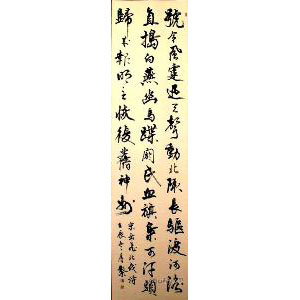 號令風霆迅天聲動北陬長驅渡河洛
直搗向燕幽馬蹀閼氏血旗梟可汗頭
歸來報明主恢復舊神州
宋岳飛北伐詩